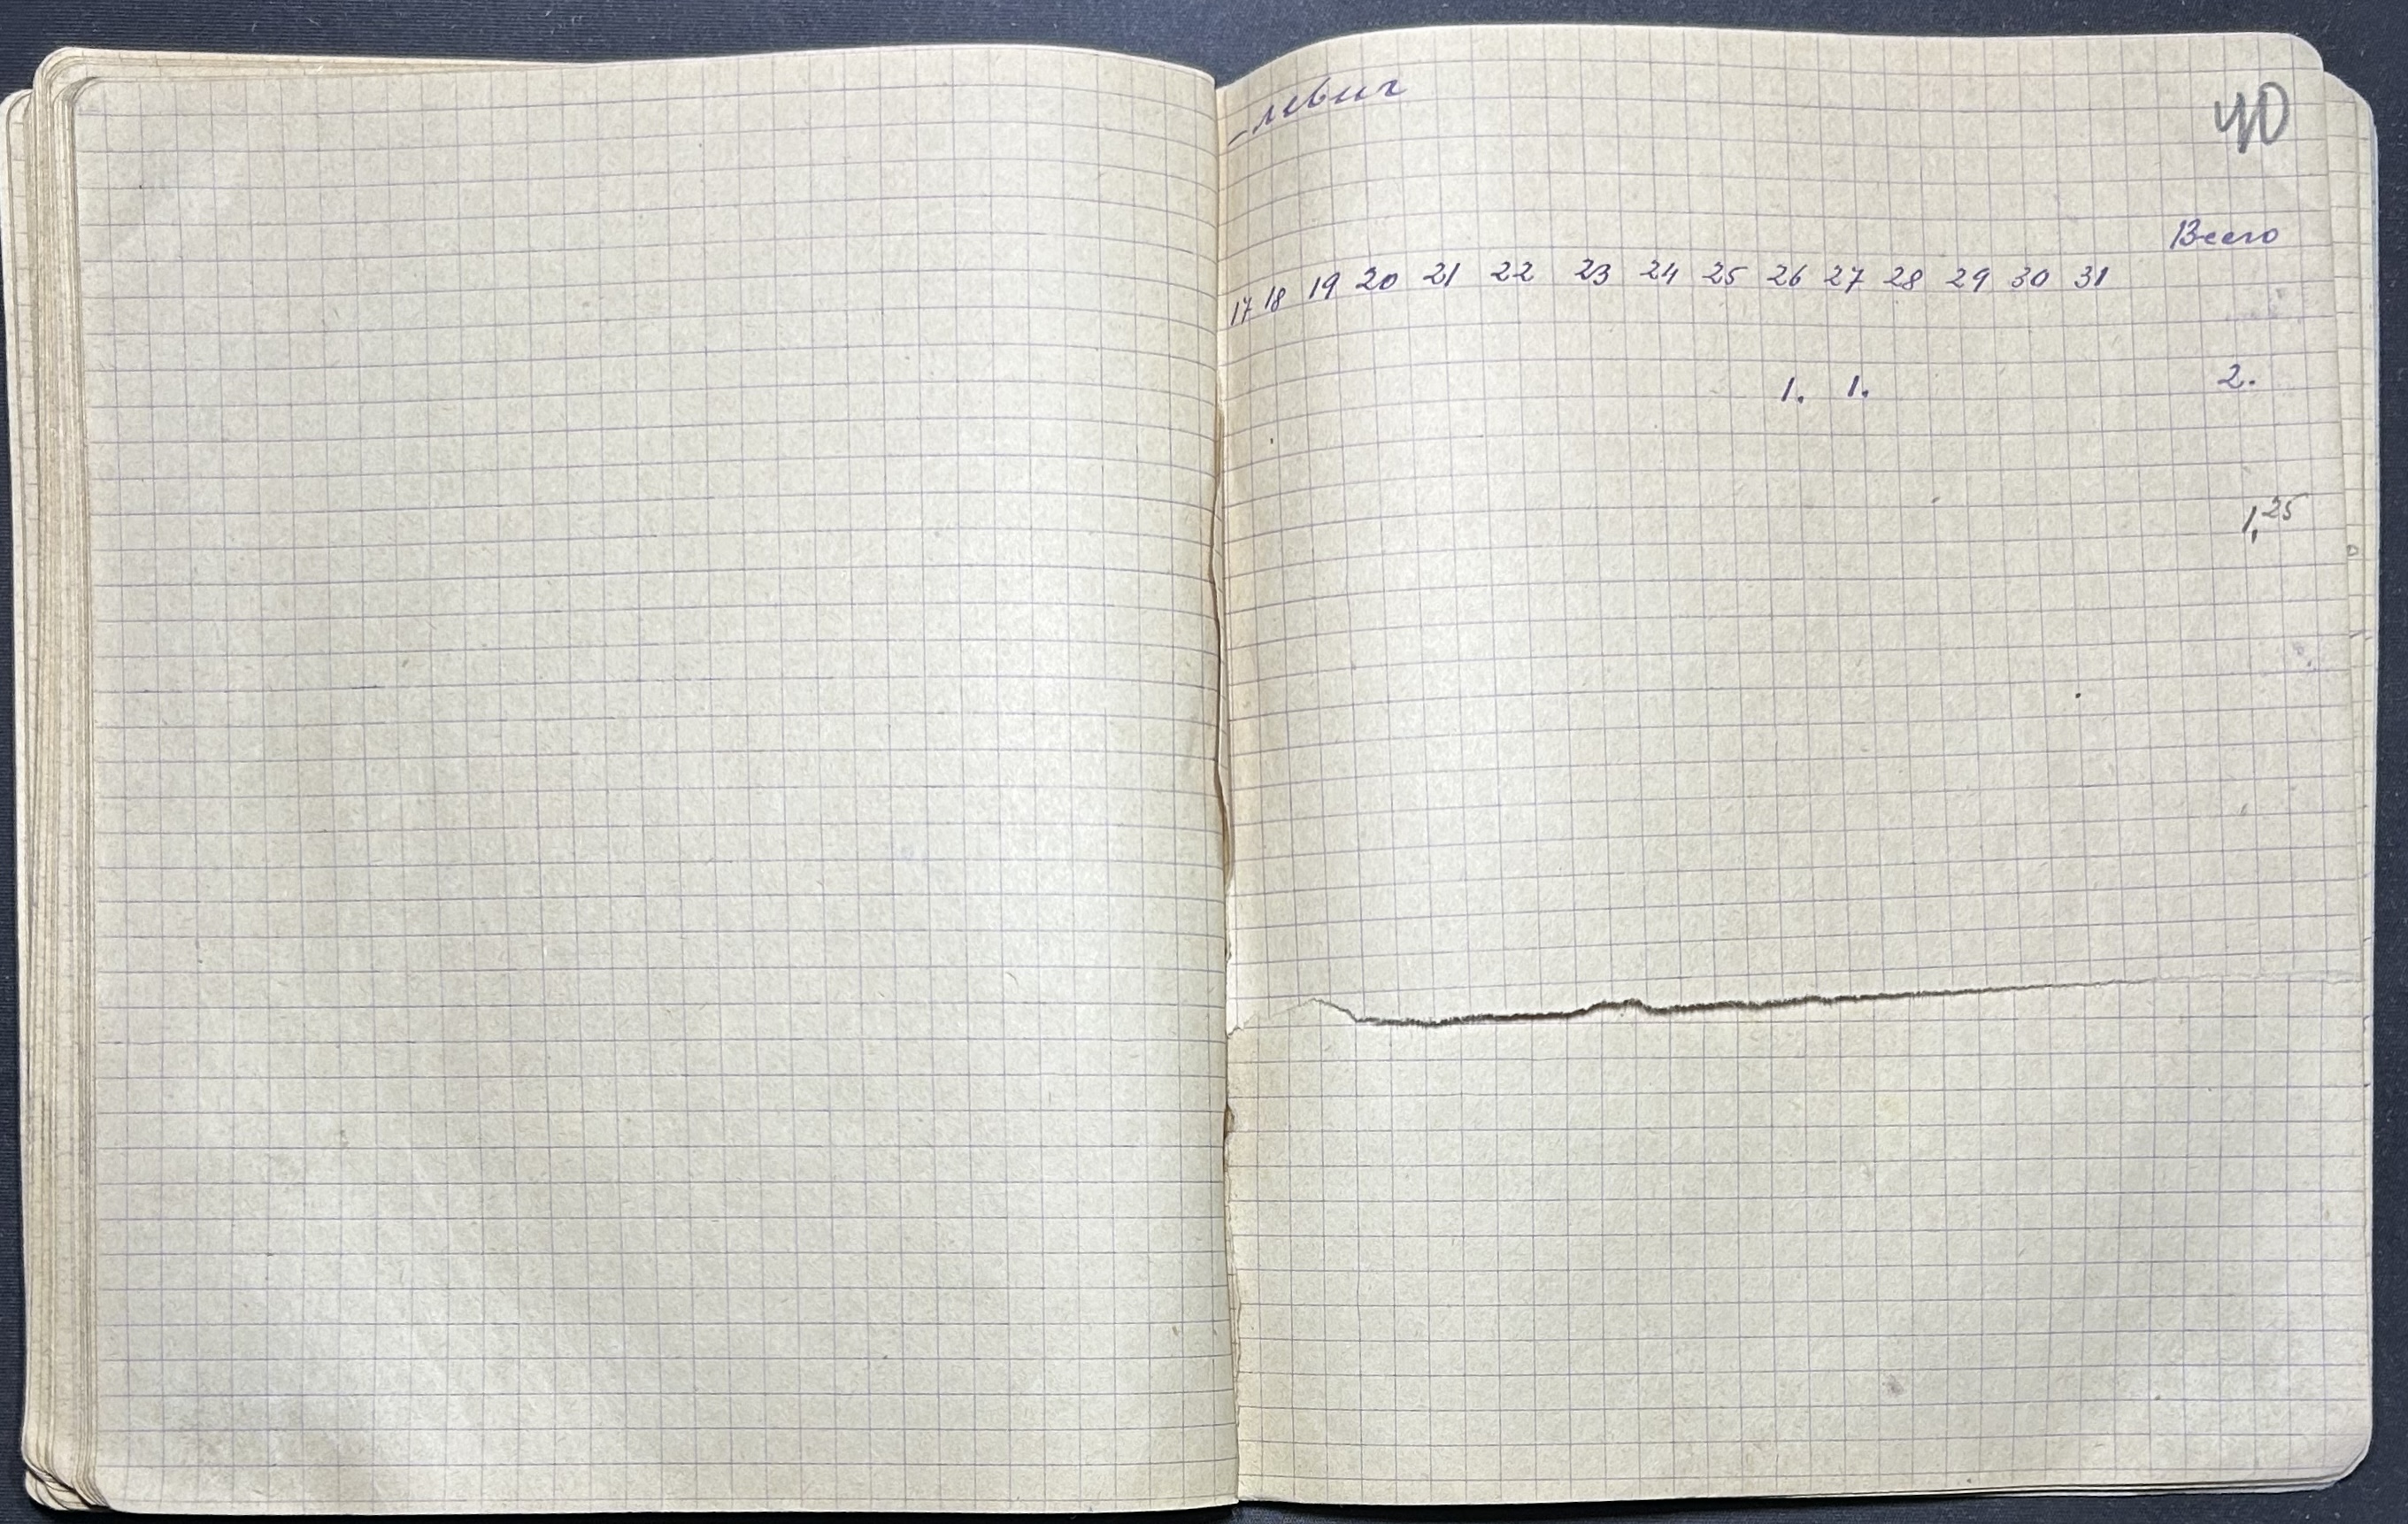 -левич
40
Всего
17 18 19 20 21 22 23 24 25 26 27 28 29 30 31
1. 1. 2.
1,25